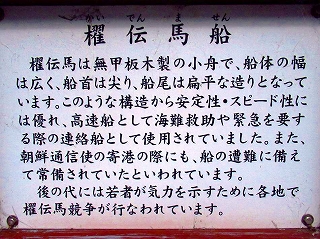 かいでんません
櫂伝馬船
櫂伝馬は無甲板木製の小舟で、船体の幅
は広く、船首は尖り、船尾は扁平な造りとなって
います。このような構造から安定性・スピード性に
は優れ、高速船として海難救助や緊急を要す
る際の連絡船として使用されていました。また、
朝鮮通信使の寄港の際にも、船の遭難に備え
て常備されていたといわれています。
後の代には若者が気力を示すために各地で
櫂伝馬競争が行なわれています。